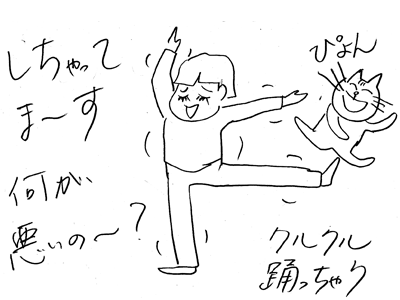 しちゃって
ま〜す
何が
悪いの〜?
ぴょん
クルクル
踊っちゃり